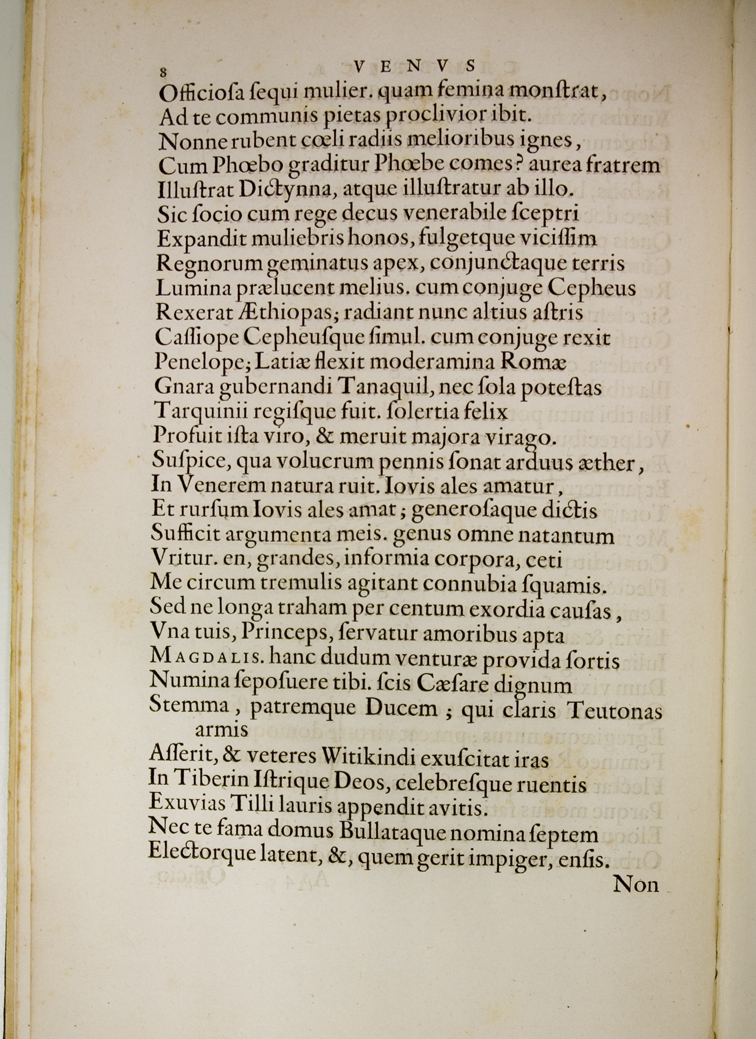 8 V E N V S
Officioſa ſequi mulier. quam femina monſtrat,
Ad te communis pietas proclivior ibit.
Nonne rubent cœli radiis melioribus ignes,
Cum Phœbo graditur Phœbe comes? aurea fratrem
Illuſtrat Dictynna, atque illuſtratur ab illo.
Sic ſocio cum rege decus venerabile ſceptri
Expandit muliebris honos, fulgetque viciſſim
Regnorum geminatus apex, conjunctaque terris
Lumina prælucent melius. cum conjuge Cepheus
Rexerat Æthiopas; radiant nunc altius aſtris
Caſſiope Cepheuſque ſimul. cum conjuge rexit
Penelope; Latiæ flexit moderamina Romæ
Gnara gubernandi Tanaquil, nec ſola poteſtas
Tarquinii regiſque fuit. ſolertia felix
Profuit iſta viro, & meruit majora virago.
Suſpice, qua volucrum pennis ſonat arduus æther,
In Venerem natura ruit. Iovis ales amatur,
Et rurſum Iovis ales amat; generoſaque dictis
Sufficit argumenta meis. genus omne natantum
Vritur. en, grandes, informia corpora, ceti
Me circum tremulis agitant connubia ſquamis.
Sed ne longa traham per centum exordia cauſas,
Vna tuis, Princeps, ſervatur amoribus apta
MAGDALIS. hanc dudum venturæ provida ſortis
Numina ſepoſuere tibi. ſcis Cæſare dignum
Stemma, patremque Ducem; qui claris Teutonas
armis
Aſſerit, & veteres Witikindi exuſcitat iras
In Tiberin Iſtrique Deos, celebreſque ruentis
Exuvias Tilli lauris appendit avitis.
Nec te fama domus Bullataque nomina ſeptem
Electorque latent, &, quem gerit impiger, enſis.
Non